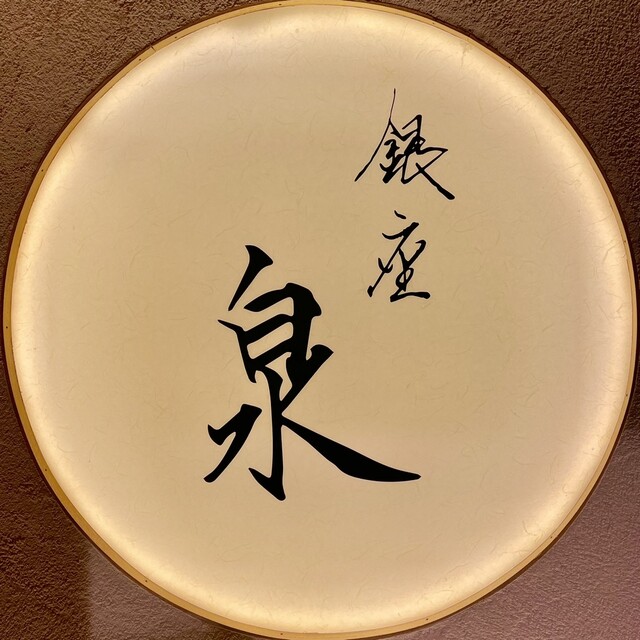 銀座
泉